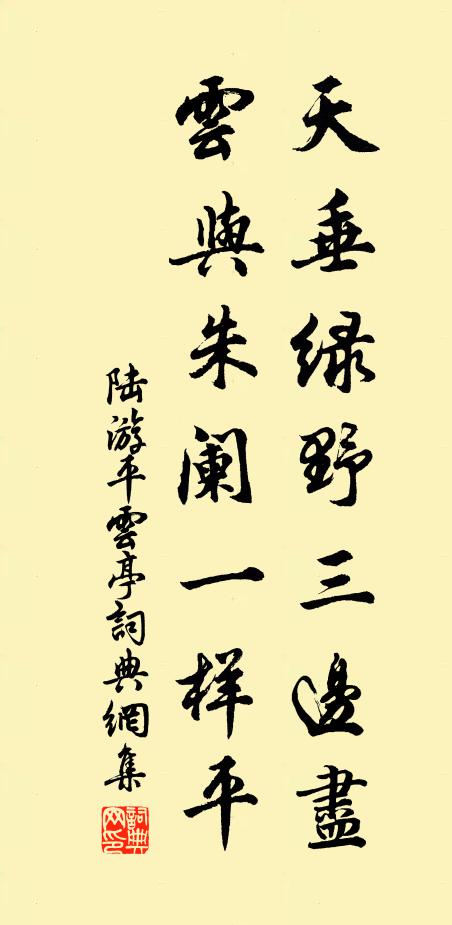 天垂绿野三邊盡
雲與朱阑一样平
陆游平雲亭詞典網集
詞典網印